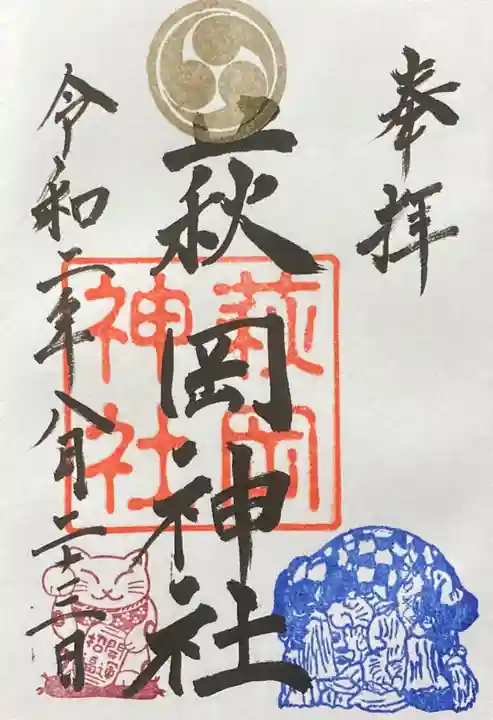 奉拝
萩岡神社
萩岡
神社
令和二年八月二十二日
開運
招福